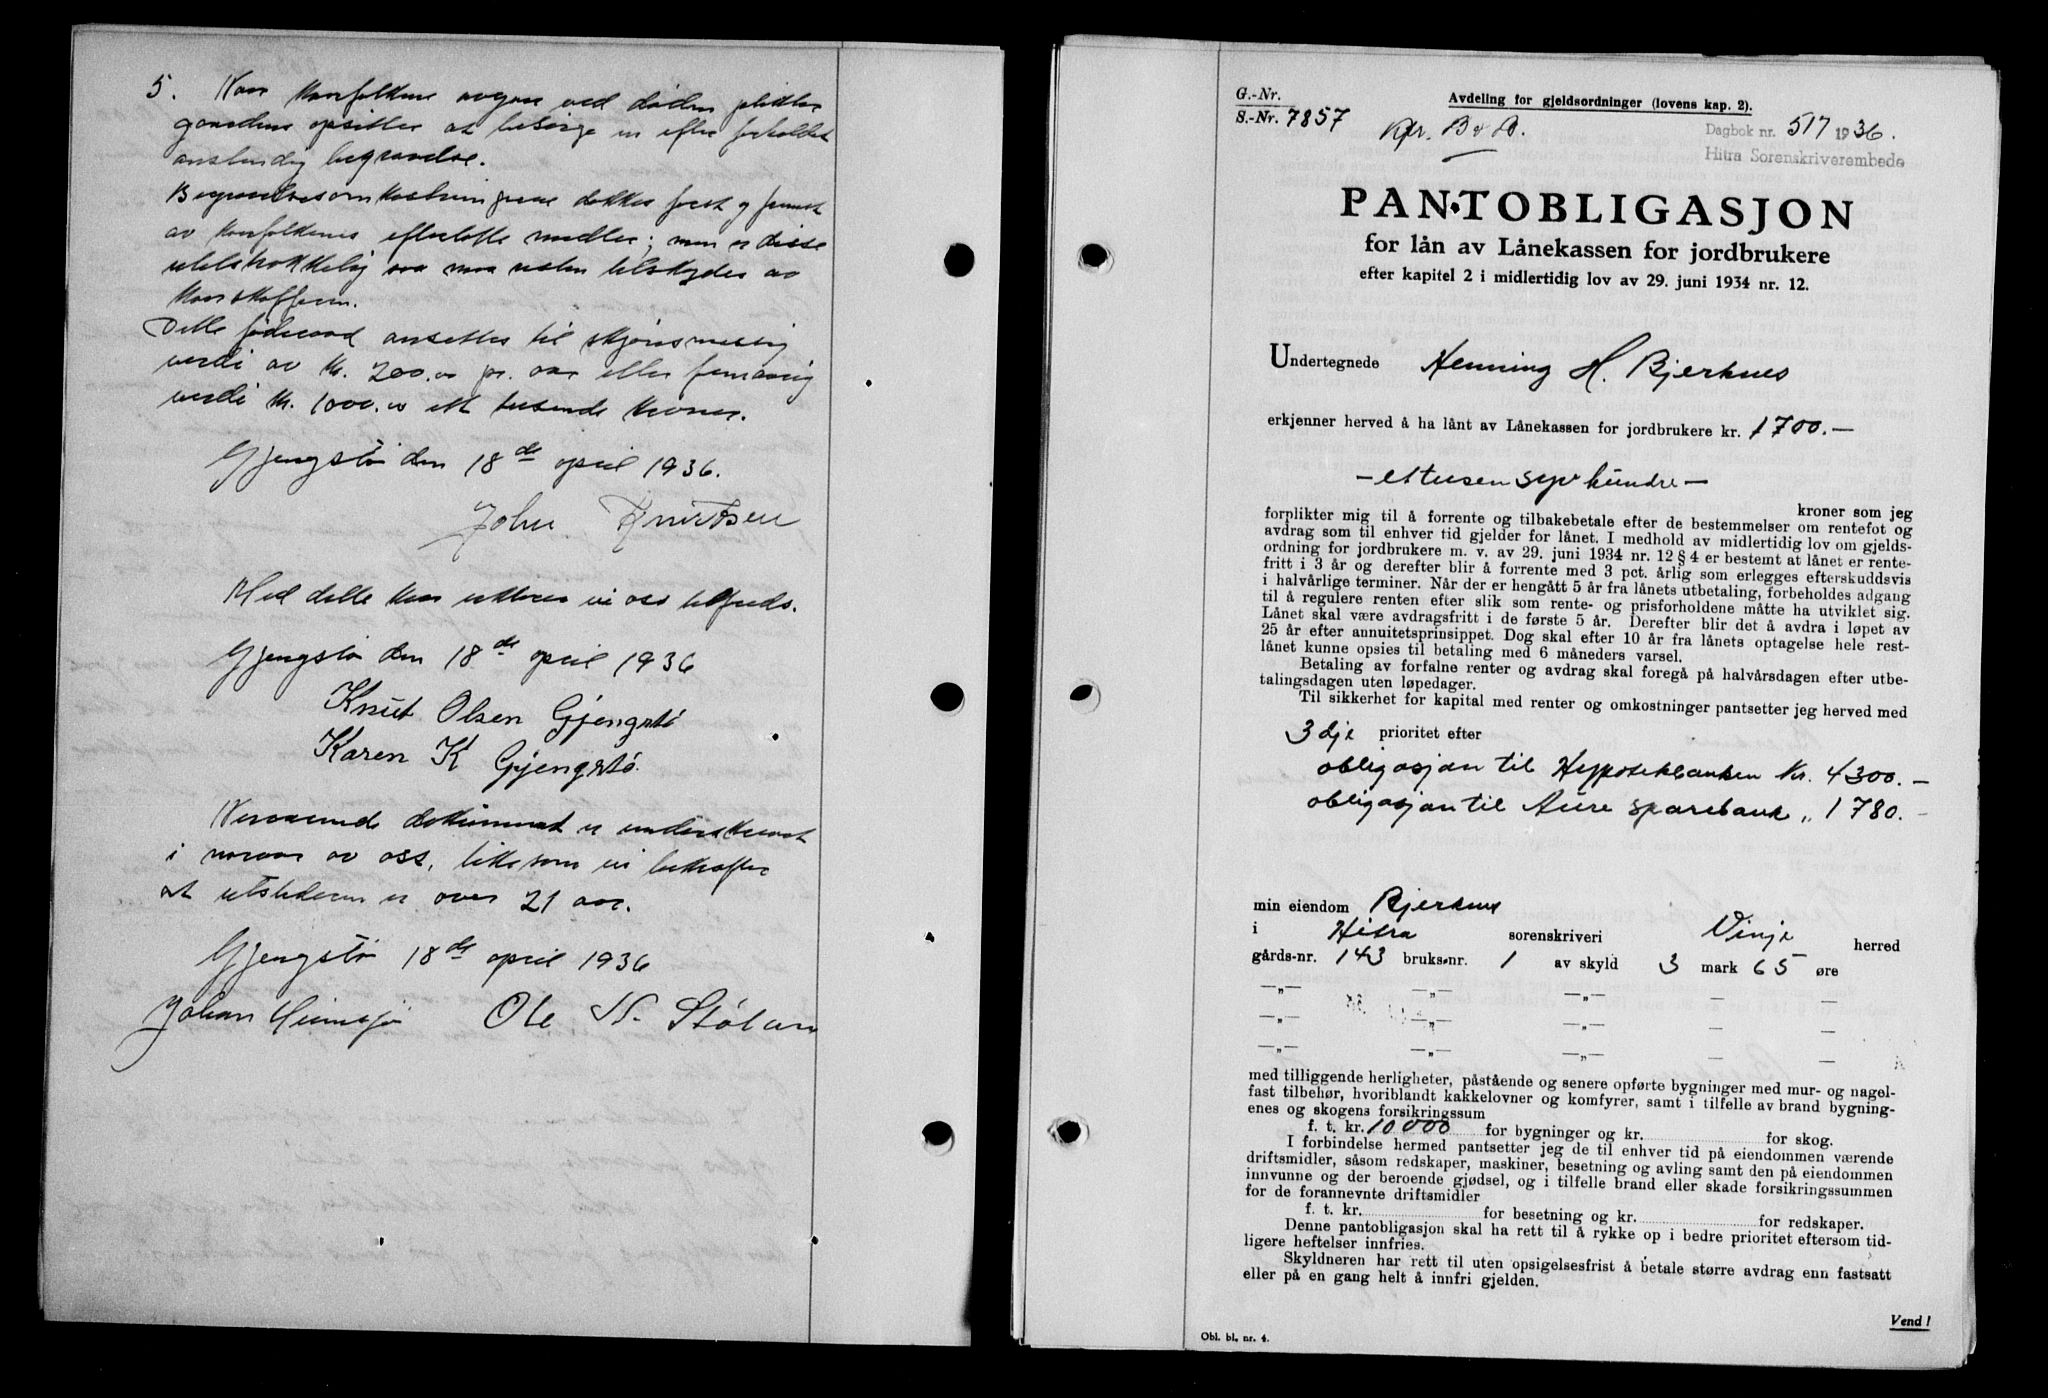 5. Naar kaarfolkene avgaar ved døden plikter
gaardens opsitter at besørge en efter forholdet
anstendig begravelse.
Begravelsesomkostningene dekkes først og fremst
av kaarfolkenes efterlatte midler; men er disse
utilstrekkelig saa maa resten tilskydes av
kaarskafferen.
Dette føderaad ansettes til skjønsmessig
verdi av kr. 200.00 pr. aar eller femaarig
verdi kr. 1000.00 ett tusende kroner.
Gjengstø den 18de april 1936.
John Knutsen
Med dette kaar erklærer vi oss tilfreds.
Gjengstø den 18de april 1936
Knut Olsen Gjengstø
Karen K Gjengstø.
Nærværende dokument er underskrevet
i nærvær av oss, likesom vi bekrefter
at utstederen er over 21 aar.
Gjengstø 18de april 1936
Johan Ole N. Stølan
G.-Nr.
S.-Nr. 7857
Kfr. B & B.
Avdeling for gjeldsordninger (lovens kap. 2).
Dagbok nr. 517 1936.
Hitra Sorenskriverembede
PANTOBLIGASJON
for lån av Lånekassen for jordbrukere
efter kapitel 2 i midlertidig lov av 29. juni 1934 nr. 12.
Undertegnede Henning H. Bjerknes
erkjenner herved å ha lånt av Lånekassen for jordbrukere kr. 1700.—
— ettusen syv hundre —
kroner som jeg
forplikter mig til å forrente og tilbakebetale efter de bestemmelser om rentefot og
avdrag som til enhver tid gjelder for lånet. I medhold av midlertidig lov om gjelds-
ordning for jordbrukere m. v. av 29. juni 1934 nr. 12 § 4 er bestemt at lånet er rente-
fritt i 3 år og derefter blir å forrente med 3 pct. årlig som erlegges efterskuddsvis
i halvårlige terminer. Når der er hengått 5 år fra lånets utbetaling, forbeholdes adgang
til å regulere renten efter slik som rente- og prisforholdene måtte ha utviklet sig.
Lånet skal være avdragsfritt i de første 5 år. Derefter blir det å avdra i løpet av
25 år efter annuitetsprinsippet. Dog skal efter 10 år fra lånets optagelse hele rest-
lånet kunne opsies til betaling med 6 måneders varsel.
Betaling av forfalne renter og avdrag skal foregå på halvårsdagen efter utbe-
talingsdagen uten løpedager.
Til sikkerhet for kapital med renter og omkostninger pantsetter jeg herved med
3dje prioritet efter
obligasjon til Hypotekbanken kr. 4300.—
obligasjon til Aure sparebank „ 1780.—
min eiendom Bjerknes
i Hitra sorenskriveri Vinje herred
gårds-nr. 143 bruks-nr. 1 av skyld 3 mark 65 øre
—„— —„— —„— — —
—„— —„— —„— — —
—„— —„— —„— — —
med tilliggende herligheter, påstående og senere opførte bygninger med mur- og nagel-
fast tilbehør, hvoriblandt kakkelovner og komfyrer, samt i tilfelle av brand bygning-
enes og skogens forsikringssum
f. t. kr. 10 000 for bygninger og kr. for skog.
I forbindelse hermed pantsetter jeg de til enhver tid på eiendommen værende
driftsmidler, såsom redskaper, maskiner, besetning og avling samt den på eiendommen
innvunne og der beroende gjødsel, og i tilfelle brand eller skade forsikringssummen
for de forannevnte driftsmidler
f. t. kr. for besetning og kr. for redskaper.
Denne pantobligasjon skal ha rett til å rykke op i bedre prioritet eftersom tid-
ligere heftelser innfries.
Skyldneren har rett til uten opsigelsesfrist å betale større avdrag enn fastsatt
eller på en gang helt å innfri gjelden.
Vend!
Obl. bl. nr. 4.